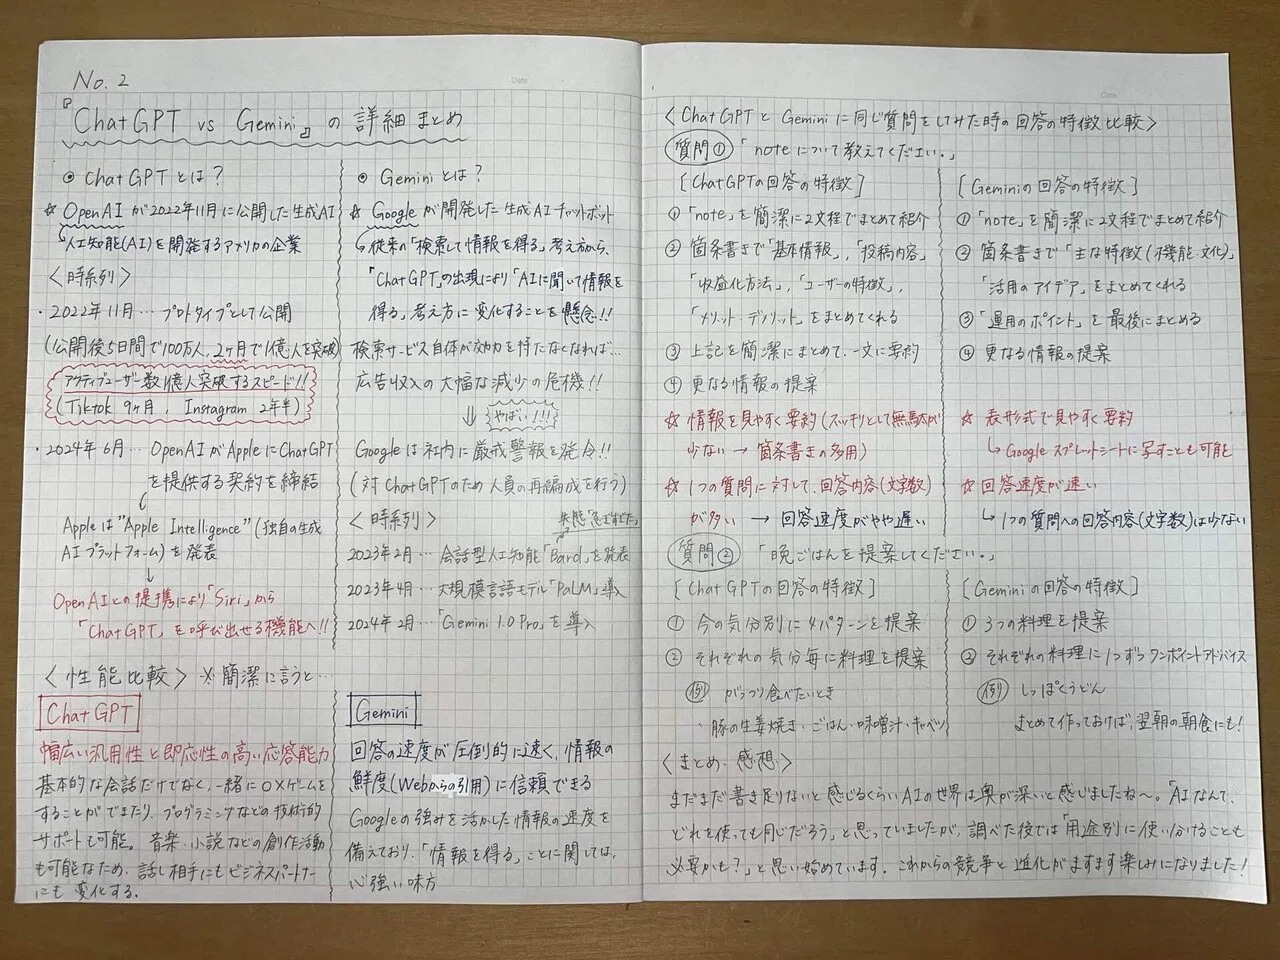 No. 2
Date
『ChatGPT vs Gemini』の詳細まとめ
◉ ChatGPTとは？
☆ OpenAIが2022年11月に公開した生成AI
↳人工知能(AI)を開発するアメリカの企業
〈時系列〉
・2022年11月…プロトタイプとして公開
(公開後5日間で100万人, 2ヶ月で1億人を突破)
アクティブユーザー数1億人突破するスピード!!
(Tiktok 9ヶ月, Instagram 2年半)
・2024年6月…OpenAIがAppleにChatGPT
を提供する契約を締結
Appleは"Apple Intelligence"(独自の生成
AIプラットフォーム)を発表
↓
OpenAIとの提携により「Siri」から
「ChatGPT」を呼び出せる機能へ!!
◉ Geminiとは？
☆ Googleが開発した生成AIチャットボット
↳従来の「検索して情報を得る」考え方から、
「ChatGPT」の出現により「AIに聞いて情報を
得る」考え方に変化することを懸念!!
検索サービス自体が効力を持たなくなれば…
広告収入の大幅な減少の危機!!
⇓ やばい!!!
Googleは社内に厳戒警報を発令!!
(対ChatGPTのため人員の再編成を行う)
〈時系列〉
2023年2月…会話型人工知能「Bard」を発表
2023年4月…大規模言語モデル「PaLM」導入
2024年2月…「Gemini 1.0 Pro」を導入
〈性能比較〉※簡潔に言うと…
ChatGPT
幅広い汎用性と即応性の高い応答能力
基本的な会話だけでなく、一緒に○×ゲームを
することができたり、プログラミングなどの技術的
サポートも可能。音楽・小説などの創作活動
も可能なため、話し相手にもビジネスパートナー
にも変化する.
Gemini
回答の速度が圧倒的に速く、情報の
鮮度(Webからの引用)に信頼できる
Googleの強みを活かした情報の速度を
備えており、「情報を得る」ことに関しては、
心強い味方
Date
〈ChatGPTとGeminiに同じ質問をしてみた時の回答の特徴比較〉
質問① 「noteについて教えてください。」
[ChatGPTの回答の特徴]
①「note」を簡潔に2文程でまとめて紹介
② 箇条書きで「基本情報」,「投稿内容」
「収益化方法」,「ユーザーの特徴」,
「メリット・デメリット」をまとめてくれる
③ 上記を簡潔にまとめて、一文に要約
④ 更なる情報の提案
☆ 情報を見やすく要約(スッキリとして無駄が
少ない → 箇条書きの多用)
☆ 1つの質問に対して、回答内容(文字数)
が多い → 回答速度がやや遅い
[Geminiの回答の特徴]
①「note」を簡潔に2文程でまとめて紹介
② 箇条書きで「主な特徴(機能・文化)」
「活用のアイデア」をまとめてくれる
③「運用のポイント」を最後にまとめる
④ 更なる情報の提案
☆ 表形式で見やすく要約
↳ Googleスプレットシートに写すことも可能
☆ 回答速度が速い
↳ 1つの質問への回答内容(文字数)は少ない
質問② 「晩ごはんを提案してください。」
[ChatGPTの回答の特徴]
① 今の気分別に4パターンを提案
② それぞれの気分毎に料理を提案
例 がっつり食べたいとき
・豚の生姜焼き・ごはん・味噌汁・キャベツ
[Geminiの回答の特徴]
① 3つの料理を提案
② それぞれの料理に1つずつワンポイントアドバイス
例 しっぽくうどん
まとめて作っておけば、翌朝の朝食にも!
〈まとめ・感想〉
まだまだ書き足りないと感じるくらいAIの世界は奥が深いと感じましたね〜。「AIなんて、
どれを使っても同じだろう」と思っていましたが、調べた後では「用途別に使い分けることも
必要かも？」と思い始めています. これからの競争と進化がますます楽しみになりました!